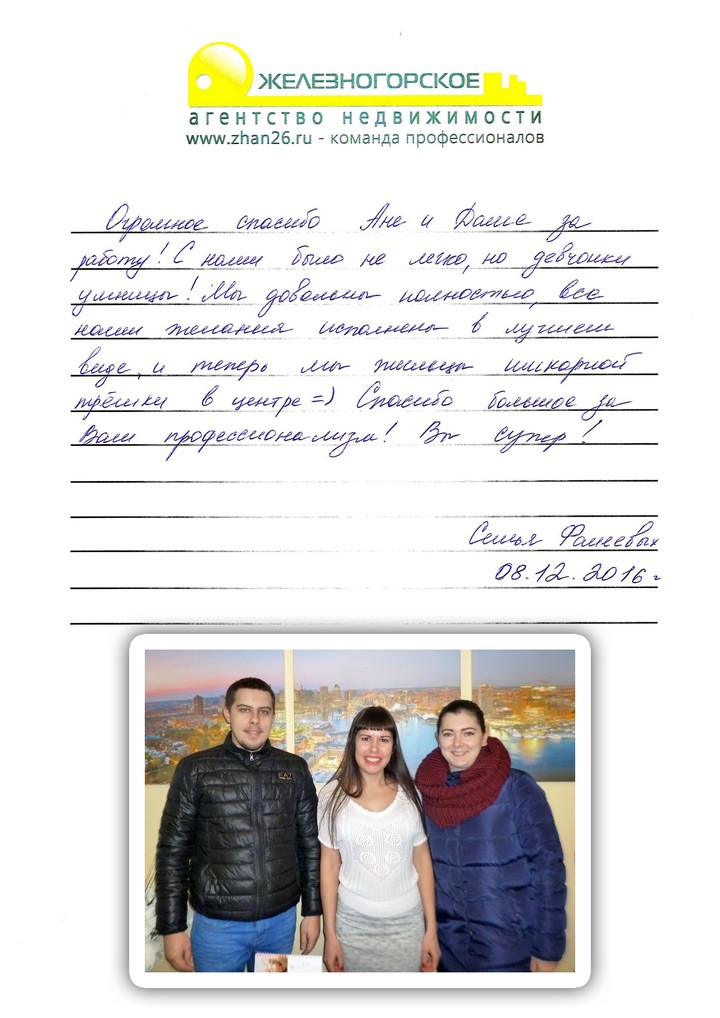 ЖЕЛЕЗНОГОРСКОЕ
агентство недвижимости
www.zhan26.ru - команда профессионалов
Огромное спасибо Ане и Даше за
работу! С нами было не легко, но девчонки
умницы! Мы довольны полностью, все
наши желания исполнены в лучшем
виде, и теперь мы жильцы шикарной
трёшки в центре =) Спасибо большое за
Ваш профессионализм! Вы супер!
Семья
08.12.2016 г
EA7